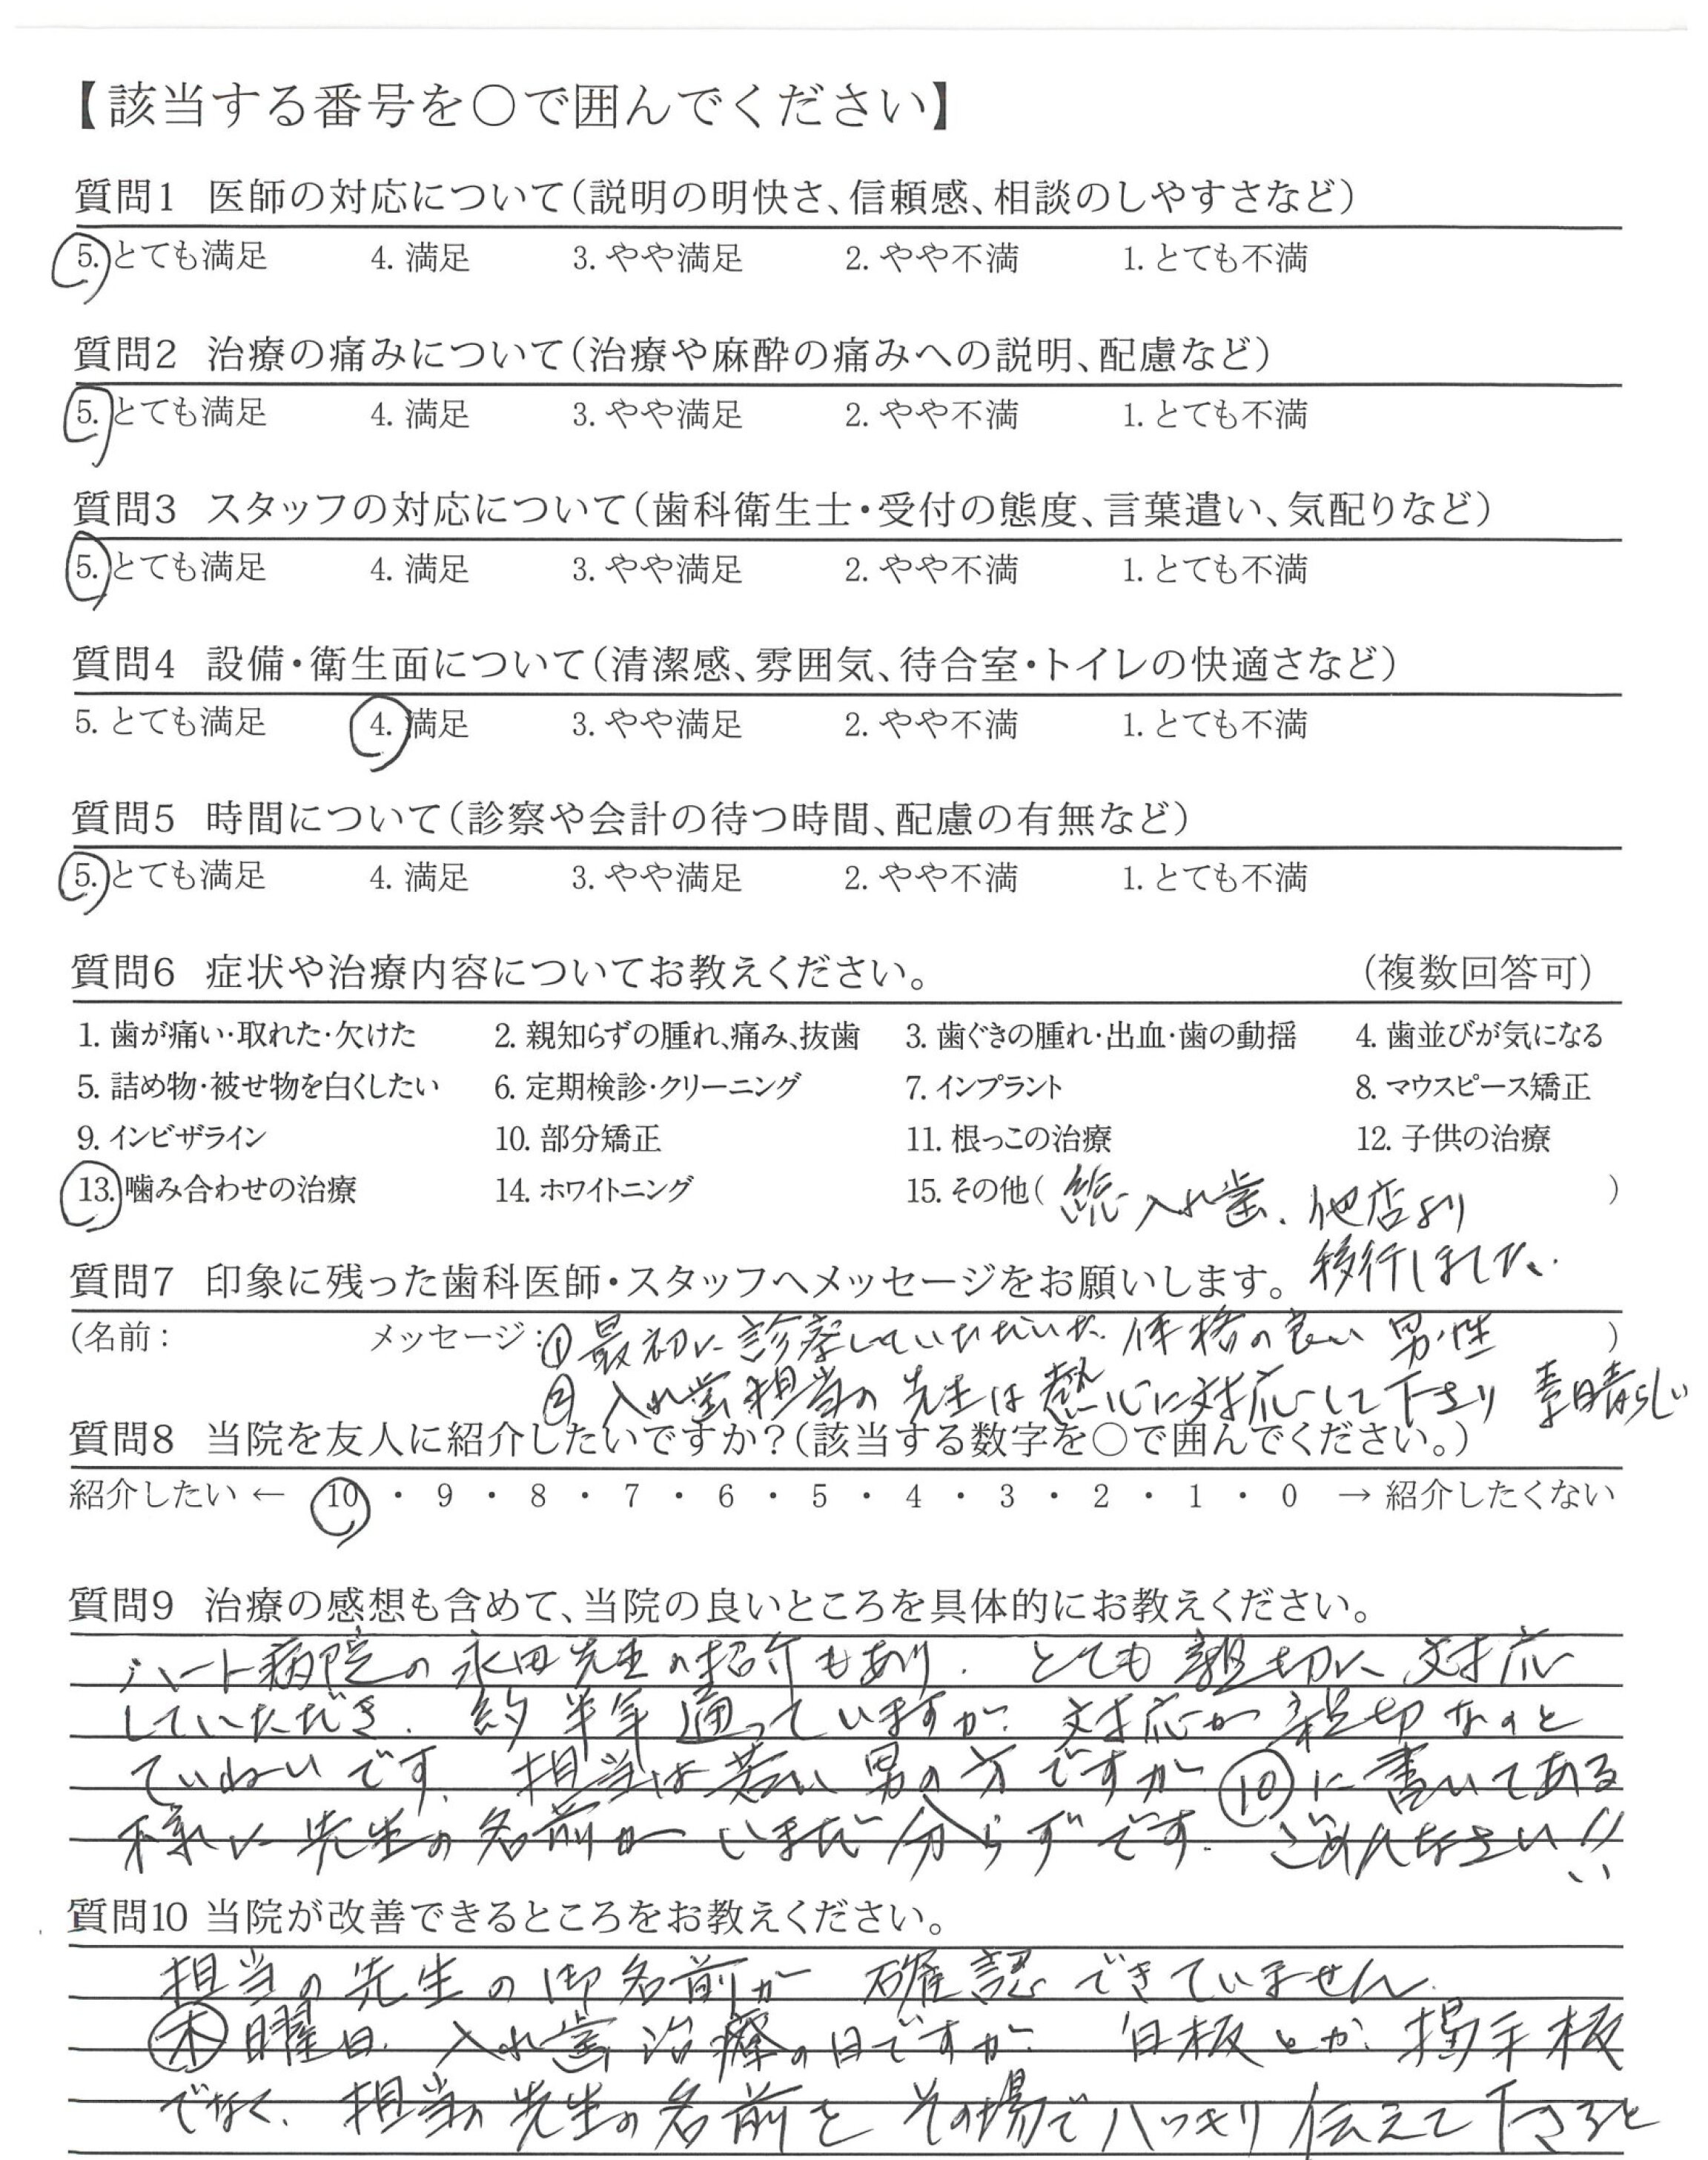 【該当する番号を○で囲んでください】
質問1 医師の対応について(説明の明快さ、信頼感、相談のしやすさなど)
5. とても満足 4. 満足 3. やや満足 2. やや不満 1. とても不満
質問2 治療の痛みについて(治療や麻酔の痛みへの説明、配慮など)
5. とても満足 4. 満足 3. やや満足 2. やや不満 1. とても不満
質問3 スタッフの対応について(歯科衛生士・受付の態度、言葉遣い、気配りなど)
5. とても満足 4. 満足 3. やや満足 2. やや不満 1. とても不満
質問4 設備・衛生面について(清潔感、雰囲気、待合室・トイレの快適さなど)
5. とても満足 4. 満足 3. やや満足 2. やや不満 1. とても不満
質問5 時間について(診察や会計の待つ時間、配慮の有無など)
5. とても満足 4. 満足 3. やや満足 2. やや不満 1. とても不満
質問6 症状や治療内容についてお教えください。 (複数回答可)
1. 歯が痛い・取れた・欠けた 2. 親知らずの腫れ、痛み、抜歯 3. 歯ぐきの腫れ・出血・歯の動揺 4. 歯並びが気になる
5. 詰め物・被せ物を白くしたい 6. 定期検診・クリーニング 7. インプラント 8. マウスピース矯正
9. インビザライン 10. 部分矯正 11. 根っこの治療 12. 子供の治療
13. 噛み合わせの治療 14. ホワイトニング 15. その他( 総入れ歯. 他店より )
移行しました.
質問7 印象に残った歯科医師・スタッフへメッセージをお願いします。
(名前: メッセージ:①最初に診察していただいた. 体格の良い 男性 )
② 入れ歯担当の 先生は 熱心に対応して下さり 素晴らしい
質問8 当院を友人に紹介したいですか?(該当する数字を○で囲んでください。)
紹介したい ← 10 ・ 9 ・ 8 ・ 7 ・ 6 ・ 5 ・ 4 ・ 3 ・ 2 ・ 1 ・ 0 → 紹介したくない
質問9 治療の感想も含めて、当院の良いところを具体的にお教えください。
ハート病院の 永田先生の紹介もあり. とても 親切に 対応
していただき. 約 半年 通っていますが. 対応が 親切なのと
ていねいです. 担当は 若い 男の方ですが ⑩に書いてある
様に 先生の 名前が いまだ 分からずです. ごめんなさい!!
質問10 当院が改善できるところをお教えください。
担当の先生の御名前が 確認 できていません.
㊍曜日. 入れ歯治療の日ですが. 白板とか. 板
でなく. 担当の先生の名前を その場でハッキリ伝えて下さると